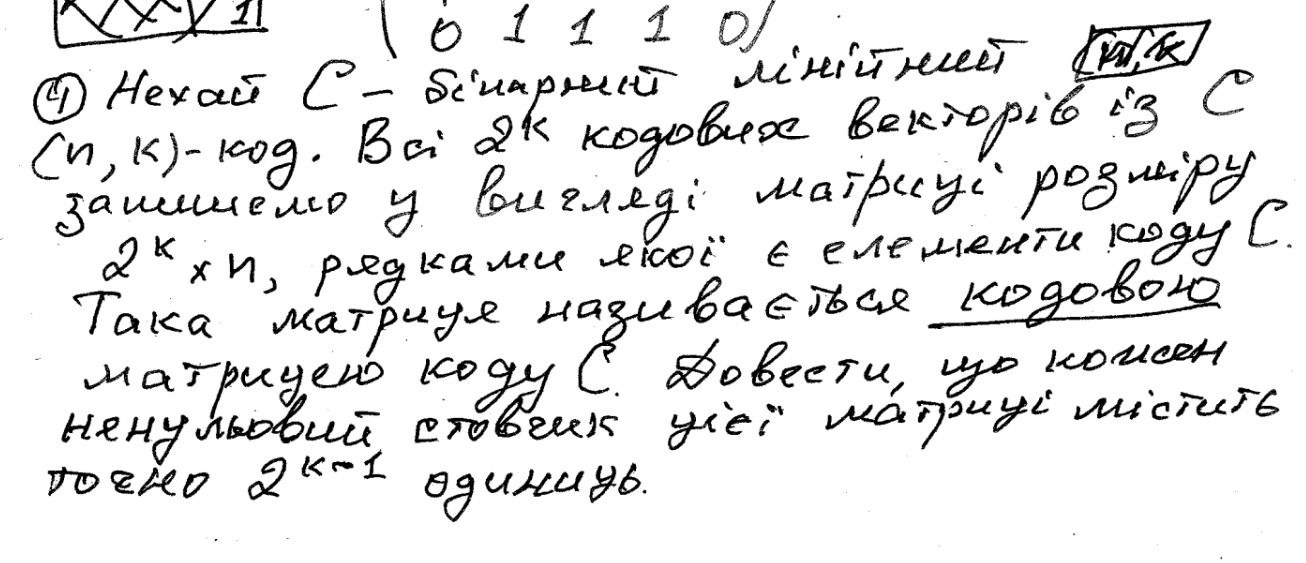 1
0 1 1 1 0
④ Нехай C – бінарний лінійний
(n, k)-код. Всі 2^k кодових векторів із C
запишемо у вигляді матриці розміру
2^k × n, рядками якої є елементи коду C.
Така матриця називається кодовою
матрицею коду C. Довести, що кожен
ненульовий стовчик цієї матриці містить
точно 2^{k-1} одиниць.